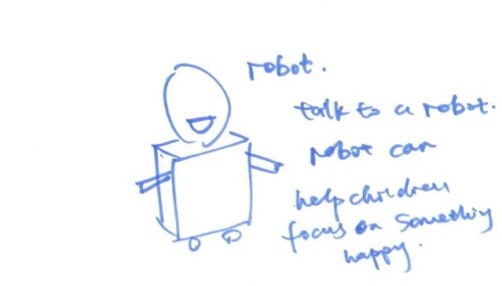 robot.
talk to a robot.
robot can
help children
focus on something
happy.